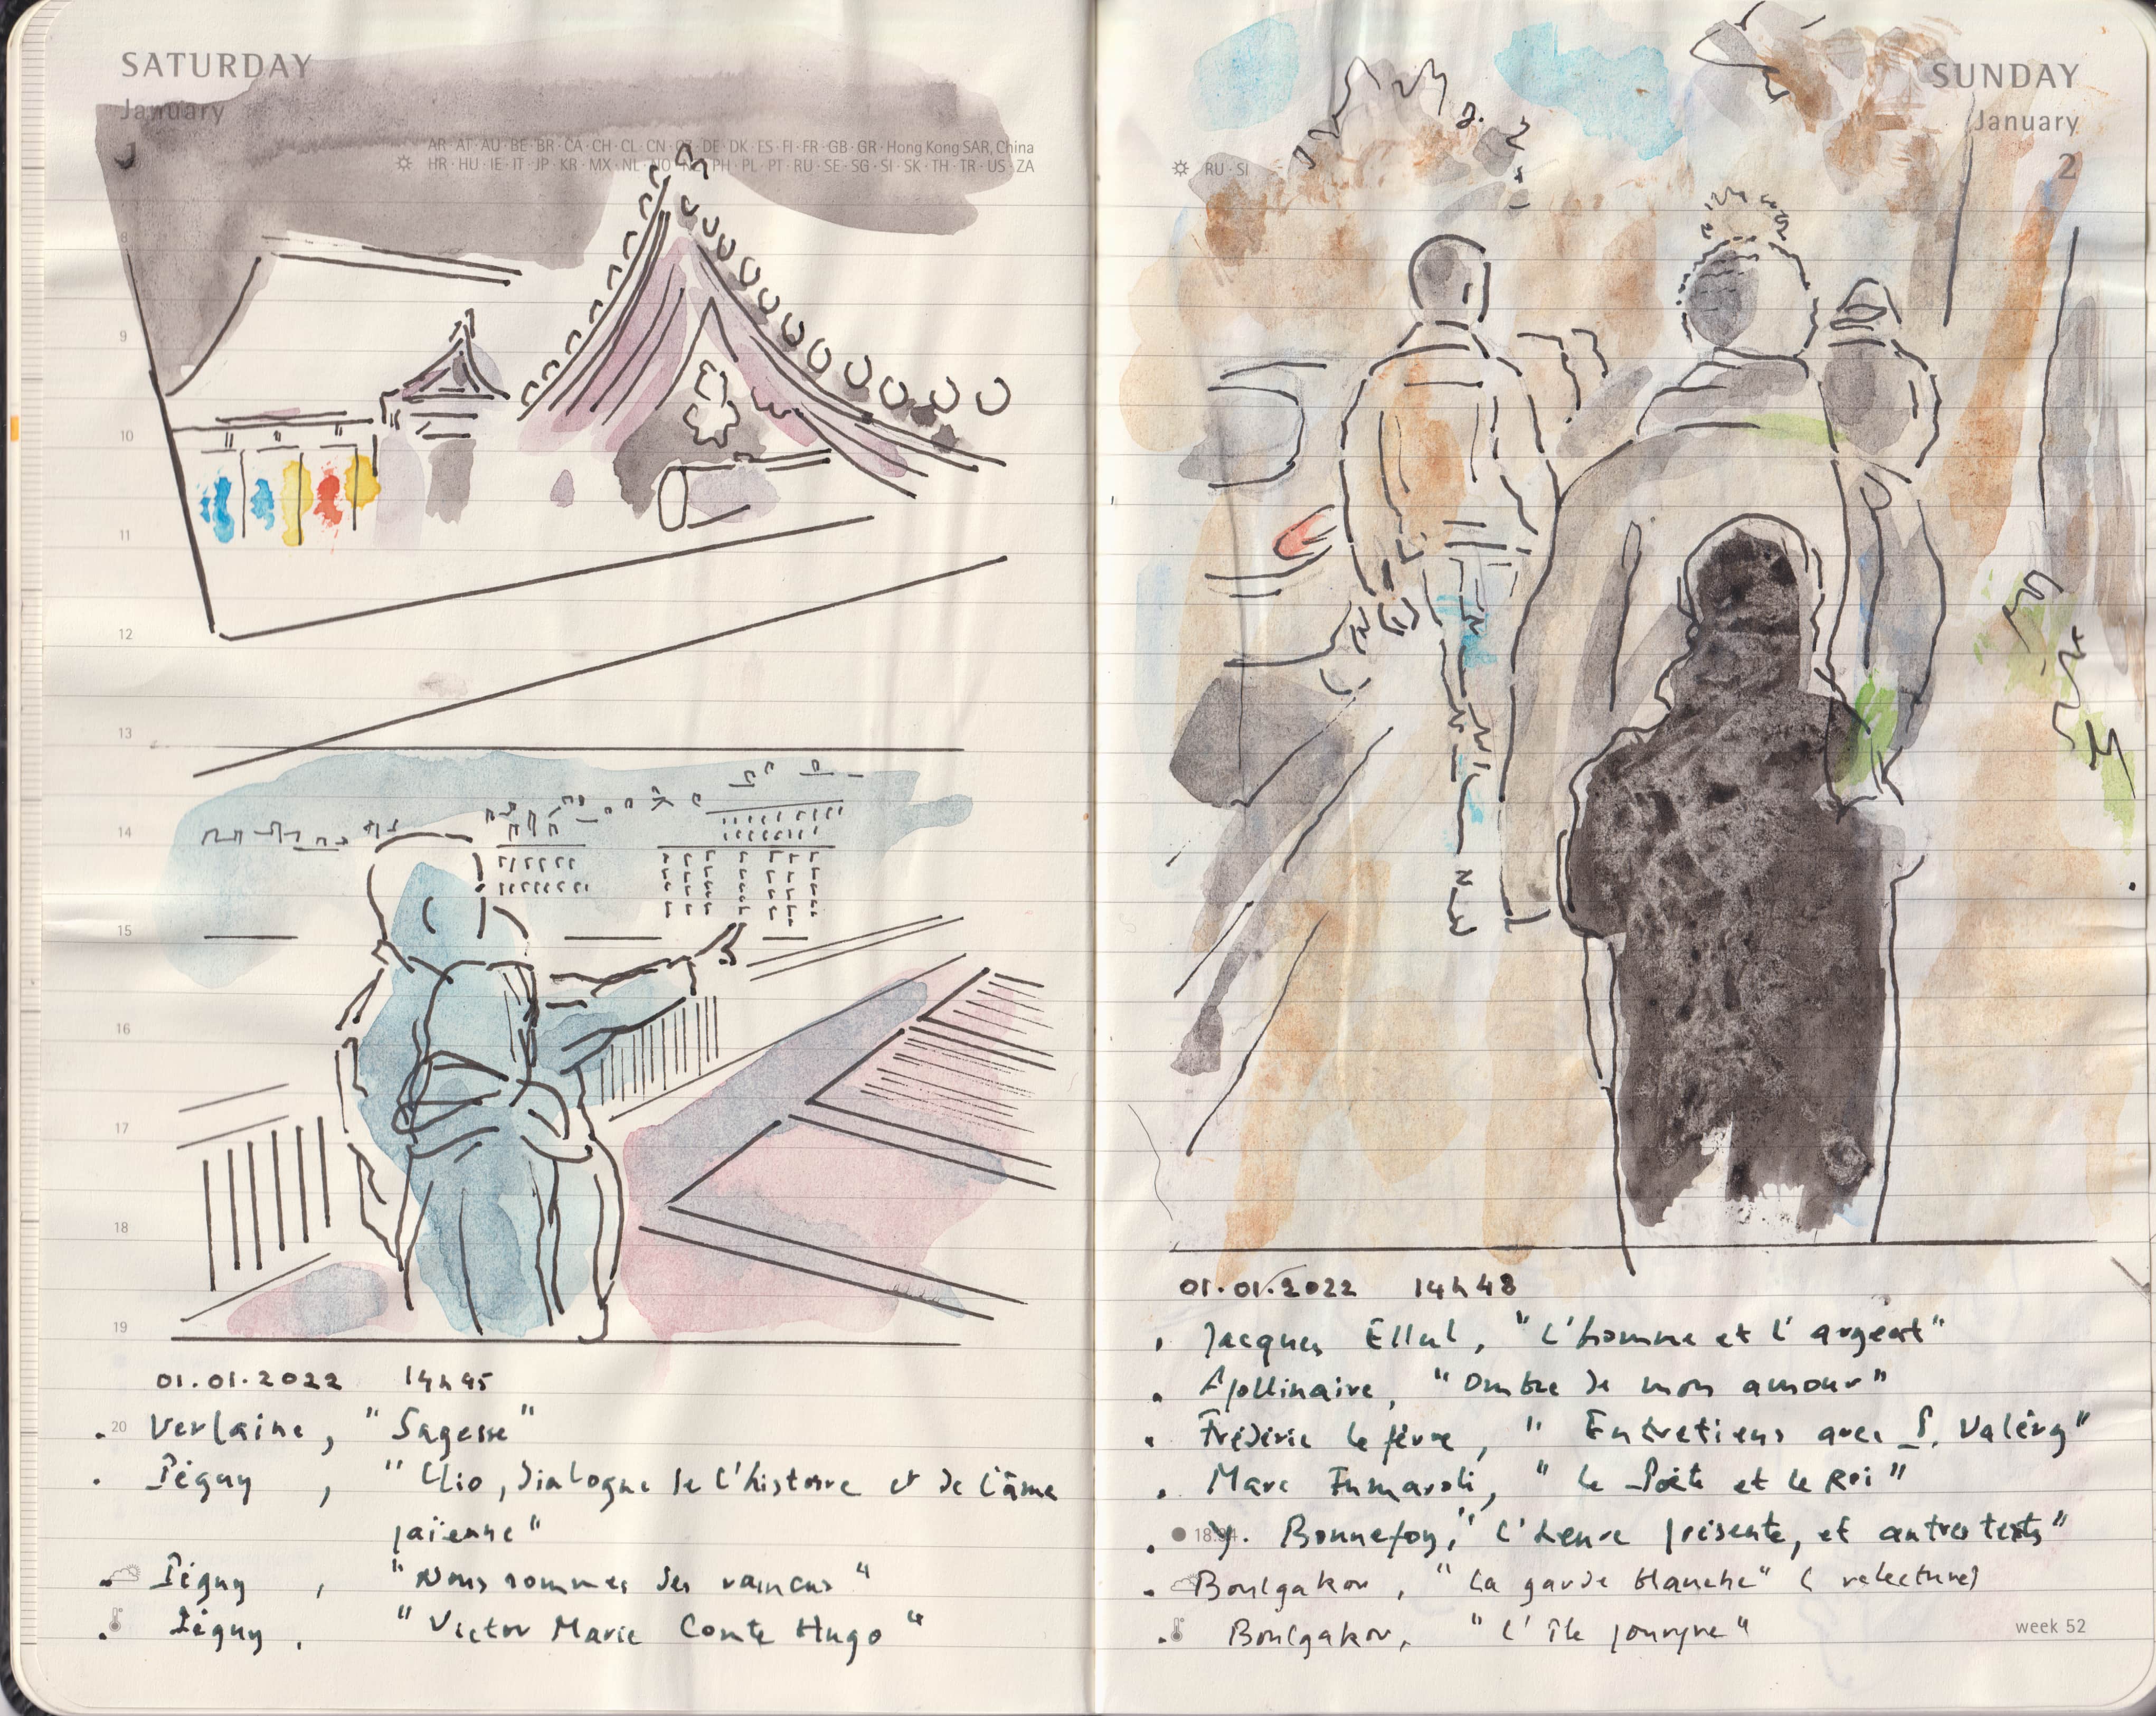 SATURDAY
January
1
AR · AT · AU · BE · BR · CA · CH · CL · CN · CZ · DE · DK · ES · FI · FR · GB · GR · Hong Kong SAR, China
HR · HU · IE · IT · JP · KR · MX · NL · NO · NZ · PH · PL · PT · RU · SE · SG · SI · SK · TH · TR · US · ZA
8
9
10
11
12
13
14
15
16
17
18
19
01.01.2022 14h45
20
. Verlaine, "Sagesse"
. Péguy, "Clio, dialogue de l'histoire et de l'âme
païenne"
. Péguy, "Nous sommes des vaincus"
. Péguy, "Victor Marie Comte Hugo"
SUNDAY
January
2
RU · SI
01.01.2022 14h48
. Jacques Ellul, "L'homme et l'argent"
. Apollinaire, "Ombre de mon amour"
. Frédéric Lefèvre, "Entretiens avec P. Valéry"
. Marc Fumaroli, "Le Poète et le Roi"
. Y. Bonnefoy, "L'heure présente, et autres textes"
. Boulgakov, "La garde blanche" (relecture)
. Boulgakov, "L'île pourpre"
week 52